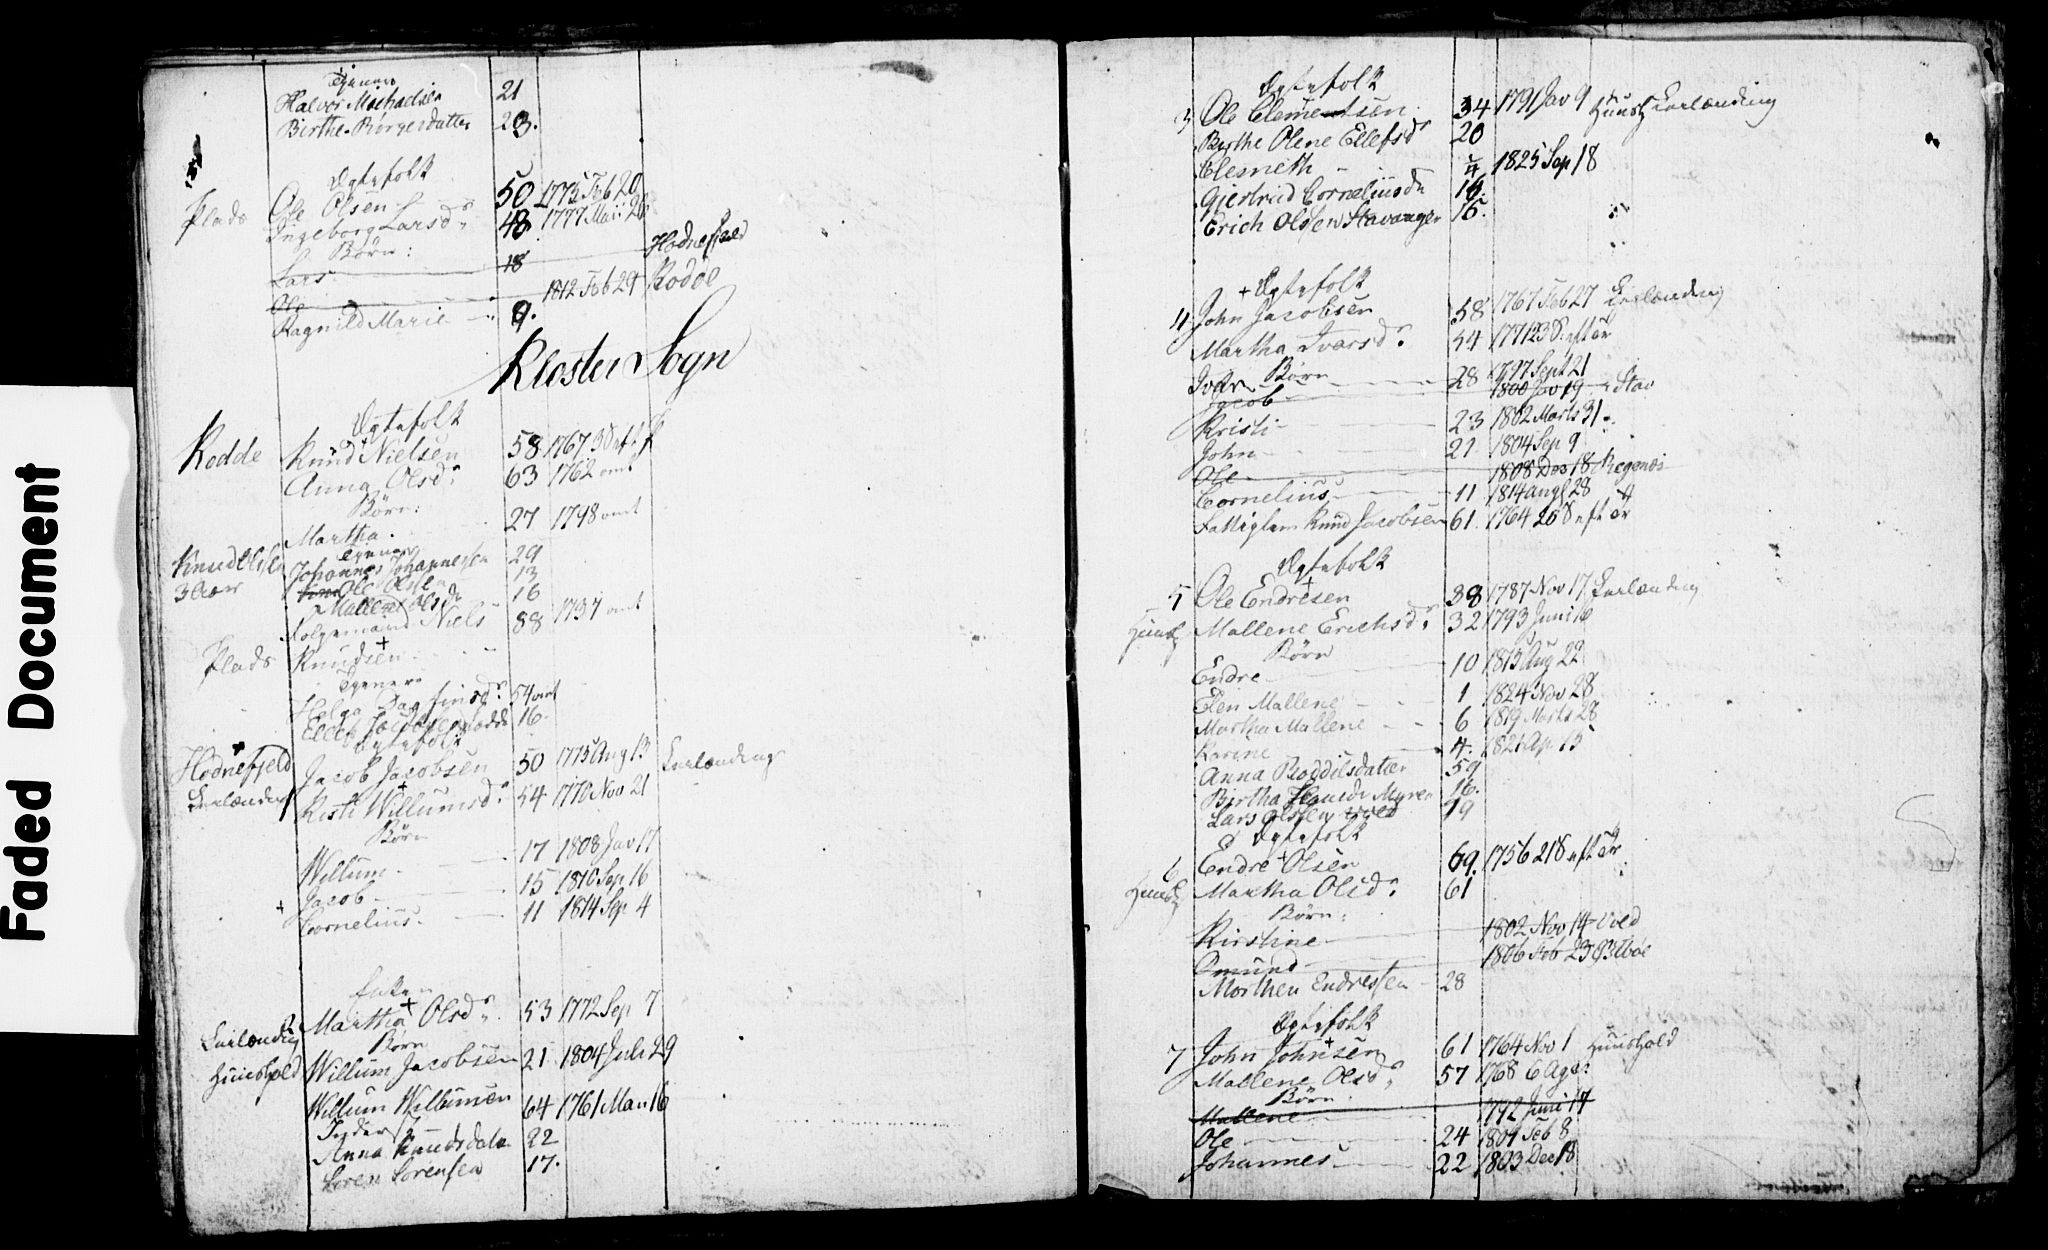 Faded Document
Tjenere
Halvor Michaelsen 21
Birthe Børgesdatter 23.
Ægtefolk
Plads Ole Olsen 50 1775 Feb 20
Ingeborg Larsd: 48 1777 Maii 26
Børn:
Lars 18 Hodnefjeld
Ole 1812 Feb 29 Rodde
Ragnild Marie 9.
Kloster Sogn
Ægtefolk
Rodde Knud Nielsen 58 1767 3 S eft P
Anna Olsd: 63 1762 omt
Børn:
Martha 27 1798 omt
Tjenere
Knud Olsen Johannes Johannesen 29
3 Aar Ole Olsen 13
Mallene Olsd 16
Folgemand Niels 88 1737 omt
Plads Knudsen
Tjenere
Helga Dagfinsd: 54 omt
16.
Ægtefolk
Hodnefjeld Jacob Jacobsen 50 1775 Aug 13 Lurlænding
Lurlænding Kisti Willumsd: 54 1770 Nov 21
Børn
Willum 17 1808 Jav 17
Jacob 15 1810 Sep 16
Cornelius 11 1814 Sep 4
Enken
2 Martha Olsd: 53 1772 Sep 7
Lurlænding Børn
Huushold Willum Jacobsen 21 1804 Juli 29
Willum Willumsen 64 1761 Man 16
Inderst
Anna Knudsdatr 22
Soren Sorensen 17.
Ægtefolk
3 Ole Clementsen 34 1791 Jav 9 Huush Lurlænding
Birthe Olene Ellefsd 20
Clemeth 1825 Sep 18
Gjertrud Corneliusdr 16.
Erich Olsen Stavanger 15.
Ægtefolk
4 John Jacobsen 58 1767 Feb 27 Lurlænding
Martha Ivarsd: 54 1771 23 S. eft Tr
Børn
Ivar 28 1797 Sept 21
Jacob 1800 Jav 19 Stav
Kristi 23 1802 Marts 31
John 21 1804 Sep 9
Ole 1808 Des 18 Regenæs
Cornelius 11 1814 Aug 28
Fattiglem Knud Jacobsen 61. 1764 20 S eft Tr
Ægtefolk
5 Ole Endresen 38 1787 Nov 17 Lurlænding
Huush Mallene Erichsd: 32 1793 Juni 16
Børn
Endre 10 1815 Aug 22
Elen Mallene 1 1824 Nov 28
Martha Mallene 6 1819 Marts 28
Karene 4. 1821 Ap 15
Anna Boddilsdatter 59
Birtha Hansdr Myren 16.
Lars Olsen Vold 19
Ægtefolk
6 Endre Olsen 69. 1756 21 S eft Tr
Huush Martha Olsd: 61
Børn:
Kirstine 1802 Nov 14 Vold
Omund 1806 Feb 23 Østbøe
Morthen Endresen 28
Ægtefolk
7 John Johnsen 61 1764 Nov 1 Huushold
Mallene Olsd: 57 1768 6
Børn:
Mallene 1792 Juni 17
Ole 24 1801 Feb 8
Johannes 22 1803 Dec 18